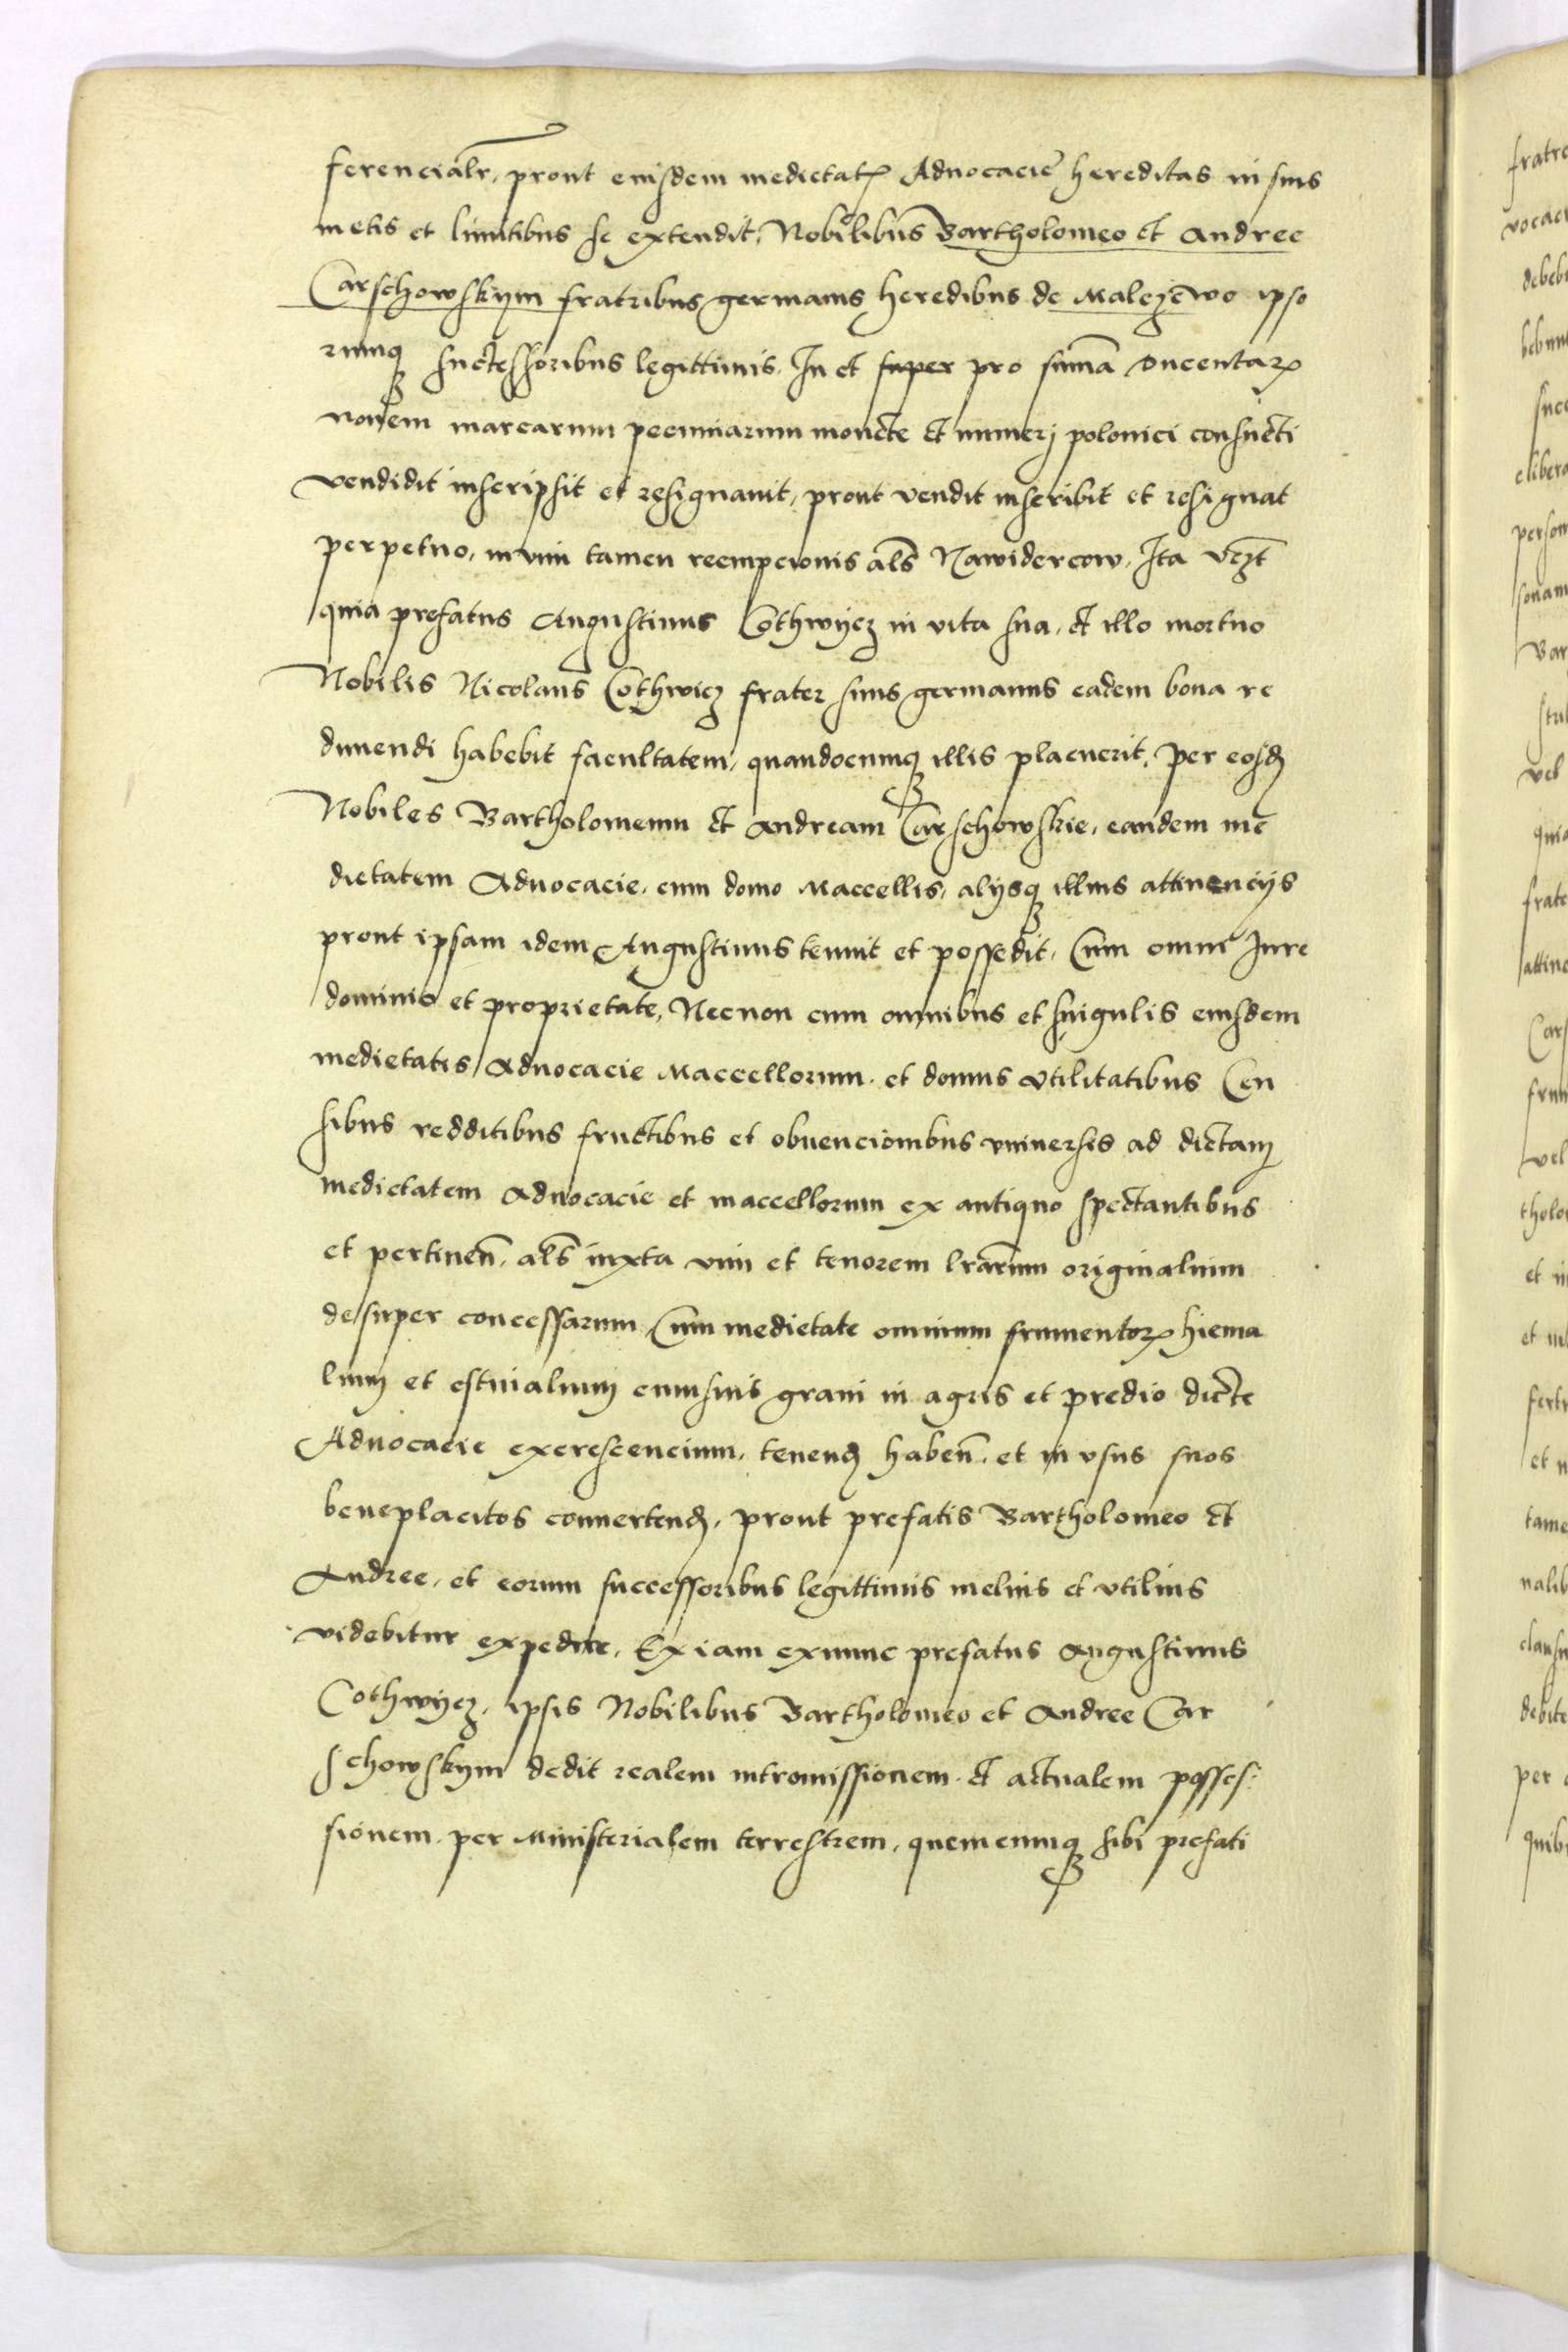 ferencialr, prout eiusdem medietatꝫ Aduocacie hereditas in suis
metis et limitibus se extendit, Nobilibus Bartholomeo et Andree
Carschowskym fratribus germanis heredibus de Maleze̅wo ipso
rumqꝫ successoribus legittimis. In et super pro suma̅ Ducentaꝝ
nouem marcarum pecuniarum monete et numerj polonici consueti
vendidit inscripsit et resignauit, prout vendit inscribit et resignat
perpetuo, in vim tamen reempcionis al̅s Nawidercow. Ita vꝫt
quia prefatus Augustinus Cothwÿcz in vita sua, et illo mortuo
Nobilis Nicolaus Cothwicz frater suus germanus eadem bona re
dimendi habebit facultatem, quandocumqꝫ illis placuerit, per eosd̅
Nobiles Bartholomeum et Andream Carschowskie, eandem me
dietatem Aduocacie, cum domo Maccellis, alÿsqꝫ illius attinencÿs
prout ipsam idem Augustinus tenuit et possedit, Cum omni Iure
dominio et proprietate, Necnon cum omnibus et singulis eiusdem
medietatis Aduocacie Maccellorum et domus vtilitatibus Cen
sibus redditibus fructibus et obuencionibus vniuersis ad dictam
medietatem Aduocacie et maccellorum ex antiquo spectantibus
et pertinen̅, al̅s iuxta vim et tenorem lra̅rum originalium
desuper concessarum, Cum medietate omnium frumentoꝝ hiema
lium et estiualium cuiusuis grani in agris et predio dicte
Aduocacie excrescencium, tenend̅ haben̅, et in vsus suos
beneplacitos conuertend̅, prout prefatis Bartholomeo et
Andree, et eorum successoribus legittimis melius et vtilius
videbitur expedire, Ex iam exnunc prefatus Augustinus
Cothwÿcz, ipsis Nobilibus Bartholomeo et Andree Car
schowskym dedit realem intromissionem et actualem posses:
sionem per Ministerialem terrestrem, quemcumqꝫ sibi prefati
fratre
debeb
person
sonam
Bar
vel
quia
frate
attine
Cars
vel
tholo
et in
et n
tame
nalib
debite
per
quib